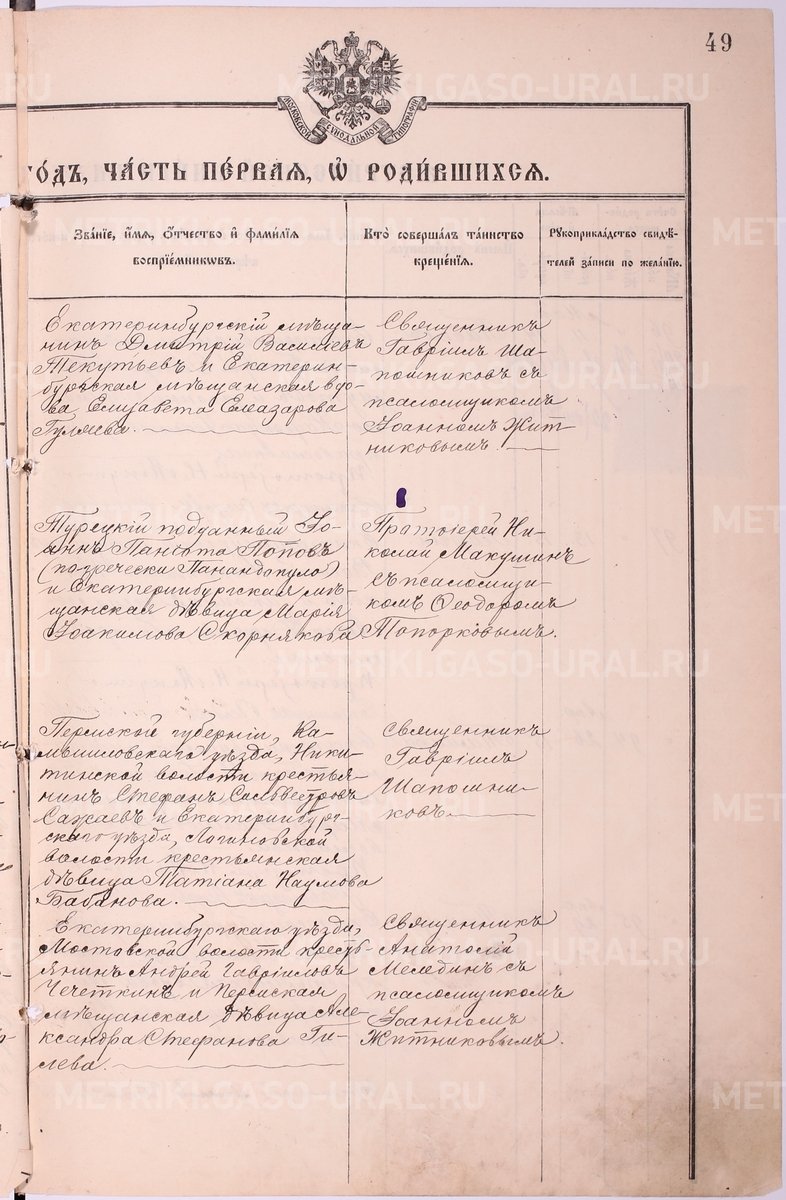 49
МОСКОВСКОЙ СѴНОДАЛЬНОЙ ТИПОГРАФІИ
го́дъ, ча́сть пе́рвая, ѡ҆ роди́вшихся.
Зва́нїе, и҆́мя, ѻ҆́тчество и҆ фами́лїя
воспрїе́мникѡвъ.
Кто̀ соверша́лъ та́инство
креще́нїя.
Рꙋкоприкла́дство свидѣ́-
телей за́писи по жела́нїю.
Екатеринбургскій мѣща-
нинъ Дмитрій Васильевъ
Текутьевъ и Екатерин-
бургская мѣщанская вдо-
ва Елизавета Елеазарова
Гуляева.
Священникъ
Гавріилъ Ша-
пошниковъ съ
псаломщикомъ
Іоанномъ Жит-
никовымъ.
Турецкій подданный Іо-
аннъ Панаіота Поповъ
(по гречески Панандопуло)
и Екатеринбургская мѣ-
щанская дѣвица Марія
Іоакимова Скорнякова
Протоіерей Ни-
колай Макушинъ
съ псаломщи-
комъ Ѳеодоромъ
Топорковымъ.
Пермской губерніи, Ка-
мышловскаго уѣзда, Ники-
тинской волости крестья-
нинъ Стефанъ Сильвестровъ
Сажаевъ и Екатеринбург-
скаго уѣзда, Логиновской
волости крестьянская
дѣвица Татіана Наумова
Бабанова.
Священникъ
Гавріилъ
Шапошни-
ковъ
Екатеринбургскаго уѣзда,
Мостовской волости кресть-
янинъ Андрей Гавріиловъ
Чечеткинъ и Пермская
мѣщанская дѣвица Але-
ксандра Стефанова Ги-
лева.
Священникъ
Анатолій
Меледин съ
псаломщикомъ
Іоанномъ
Житниковымъ.
METRIKI.GASO-URAL.RU